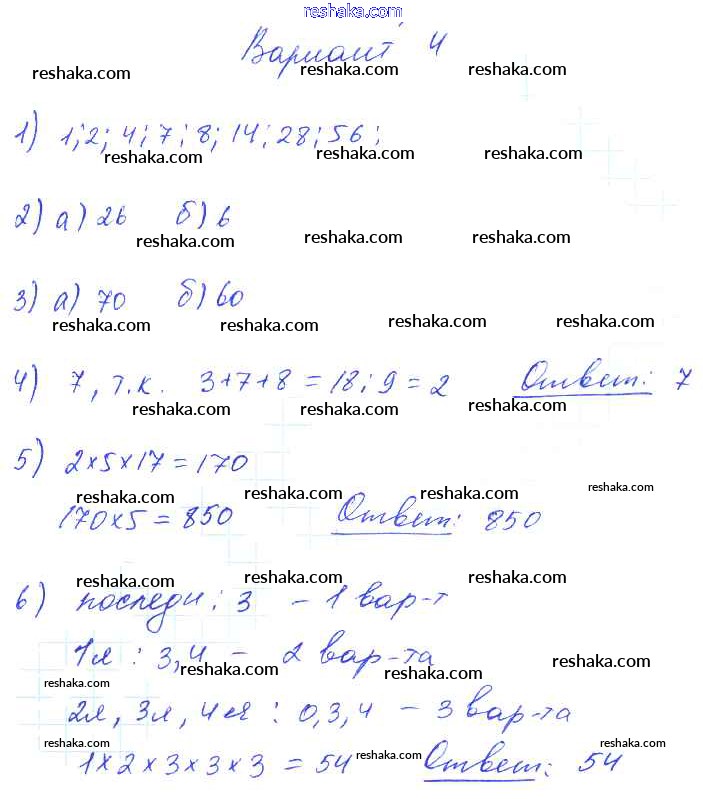 www.reshaka.com
Вариант 4
reshaka.com reshaka.com reshaka.com
1) 1; 2; 4; 7; 8; 14; 28; 56;
reshaka.com reshaka.com reshaka.com
2) а) 26 б) 6
reshaka.com reshaka.com reshaka.com
3) а) 70 б) 60
reshaka.com reshaka.com reshaka.com reshaka.com
4) 7, т.к. 3+7+8=18:9=2 Ответ: 7
reshaka.com reshaka.com reshaka.com
5) 2×5×17=170
reshaka.com reshaka.com reshaka.com reshaka.com
170×5=850 Ответ: 850
reshaka.com reshaka.com reshaka.com
6) последн: 3 – 1 вар-т
1я: 3,4 – 2 вар-та
reshaka.com reshaka.com reshaka.com reshaka.com
2я, 3я, 4ая: 0,3,4 – 3 вар-та
reshaka.com reshaka.com reshaka.com reshaka.com
1×2×3×3×3=54 Ответ: 54